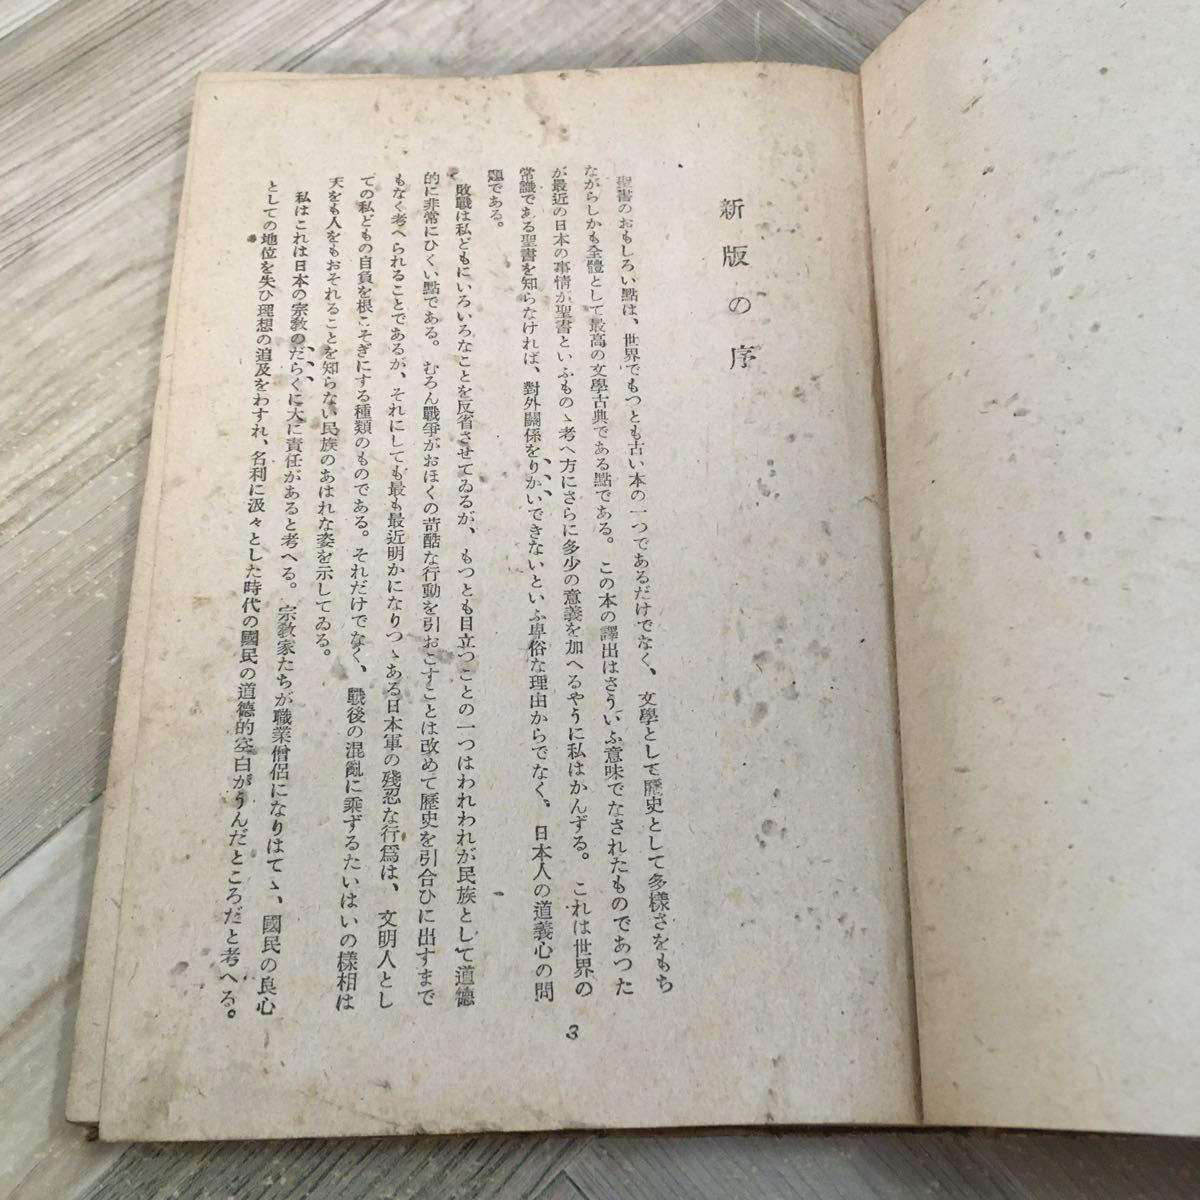 新版の序
聖書のおもしろい點は、世界でもつとも古い本の一つであるだけでなく、文學として歷史として多樣さをもち
ながらしかも全體として最高の文學古典である點である。この本の譯出はさういふ意味でなされたものであつた
が最近の日本の事情が聖書といふものゝ考へ方にさらに多少の意義を加へるやうに私はかんずる。これは世界の
常識である聖書を知らなければ、對外關係をりかいできないといふ卑俗な理由からでなく、日本人の道義心の問
題である。
敗戰は私どもにいろいろなことを反省させてゐるが、もつとも目立つことの一つはわれわれが民族として道德
的に非常にひくい點である。むろん戰爭がおほくの苛酷な行動を引おこすことは改めて歷史を引合ひに出すまで
もなく考へられることであるが、それにしても最も最近明かになりつゝある日本軍の殘忍な行爲は、文明人とし
ての私どもの自負を根こそぎにする種類のものである。それだけでなく、戰後の混亂に乘ずるたいはいの樣相は
天をも人をもおそれることを知らない民族のあはれな姿を示してゐる。
私はこれは日本の宗教のだらくに大に責任があると考へる。宗教家たちが職業僧侶になりはてゝ、國民の良心
としての地位を失ひ理想の追及をわすれ、名利に汲々とした時代の國民の道德的空白がうんだところだと考へる。
3